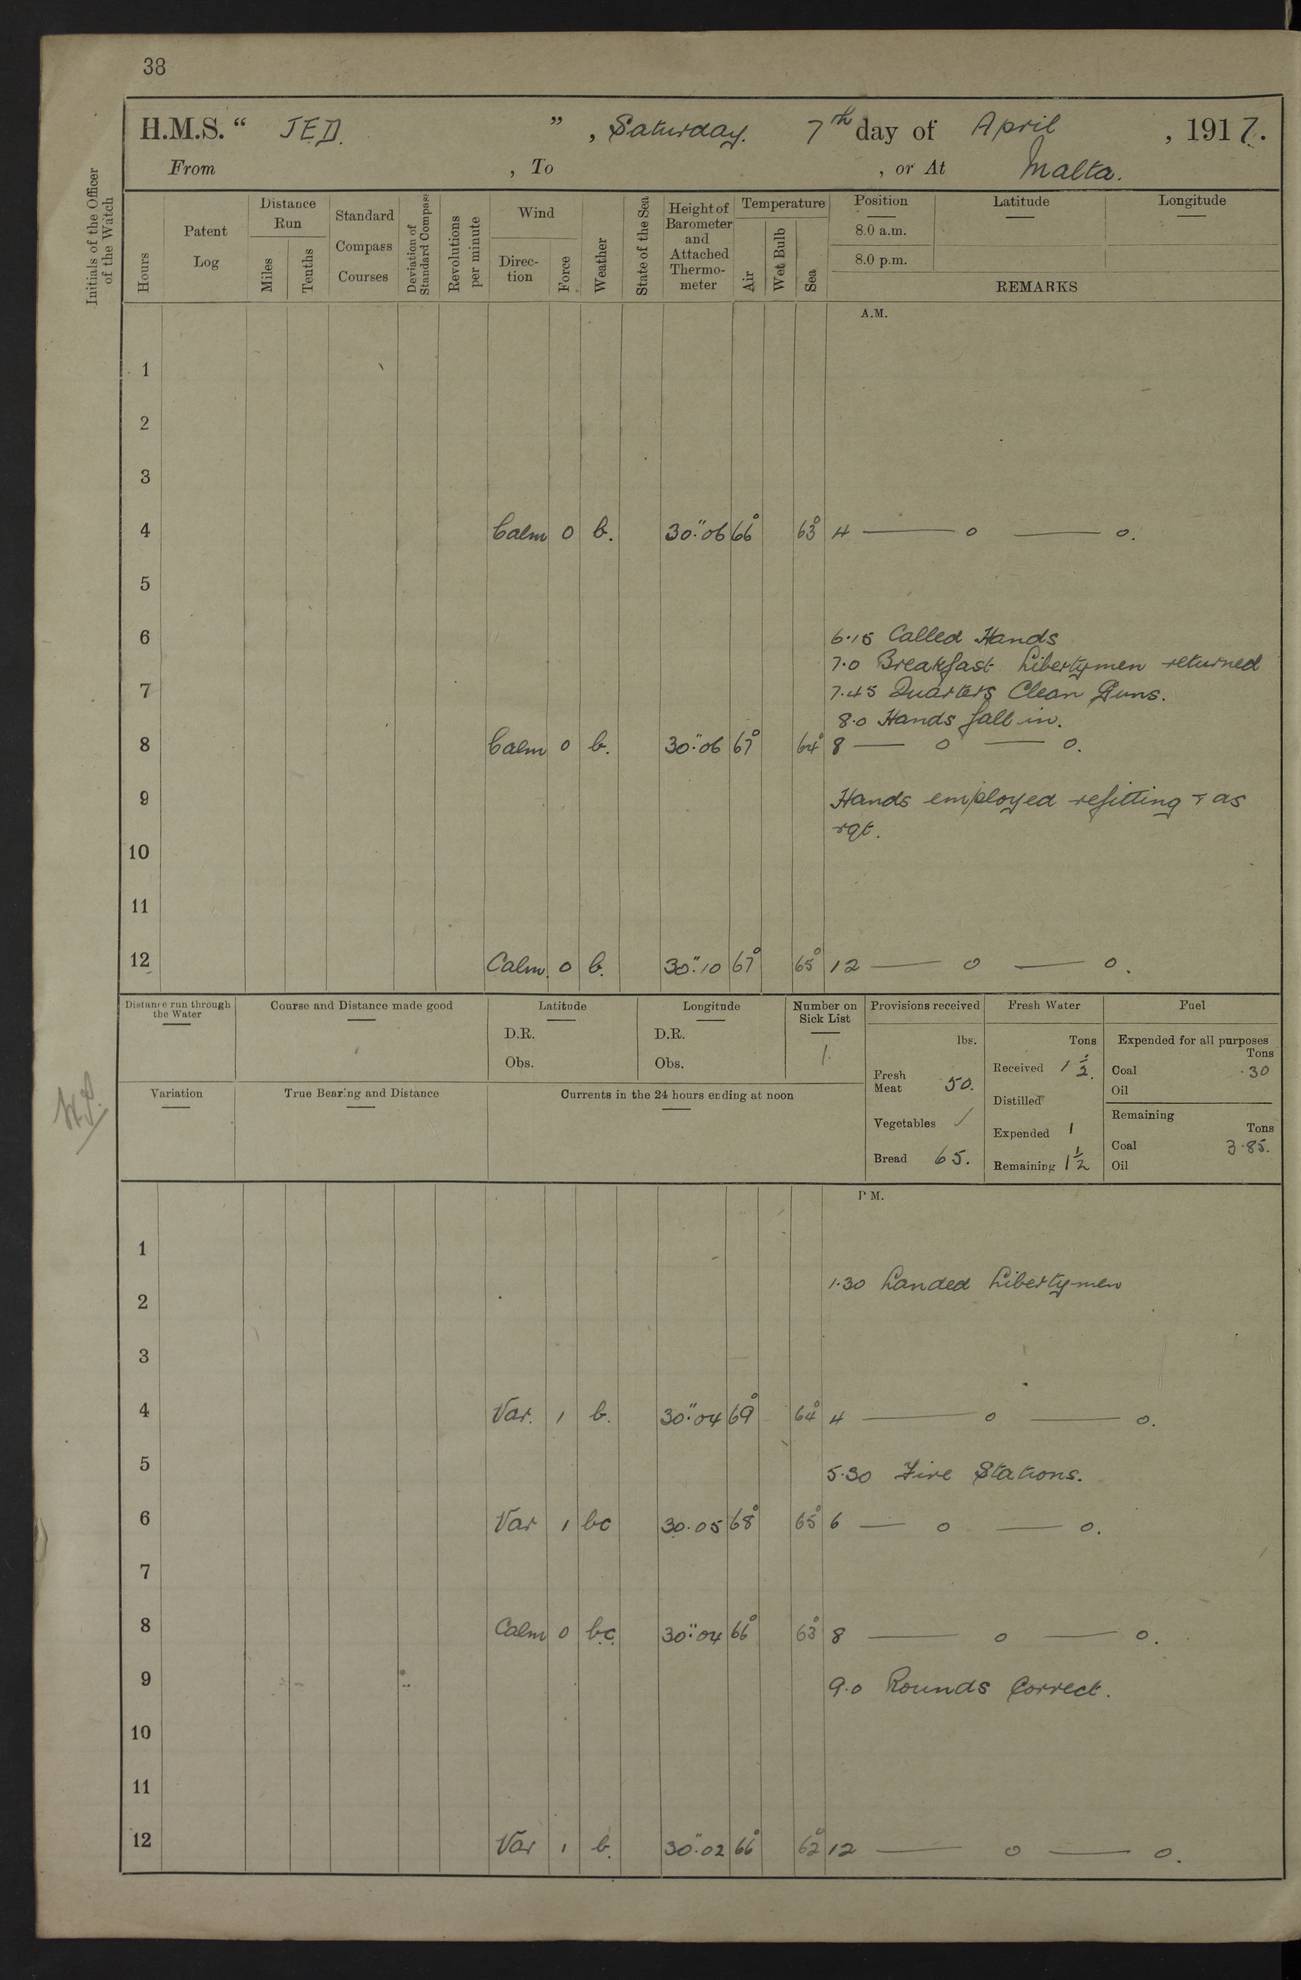 38
H.M.S. “ JED. ” , Saturday. 7th day of April , 1917.
From , To , or At Malta.
Initials of the Officer of the Watch
Hours
Patent Log
Distance Run
Miles
Tenths
Standard Compass Courses
Deviation of Standard Compass
Revolutions per minute
Wind
Direction
Force
Weather
State of the Sea
Height of Barometer and Attached Thermometer
Temperature
Air
Wet Bulb
Sea
Position
Latitude
Longitude
8.0 a.m.
8.0 p.m.
REMARKS
A.M.
1
2
3
4 Calm 0 b. 30".06 66° 63° 4 — o — o.
5
6 6.15 Called Hands
7.0 Breakfast Libertymen returned
7 7.45 Quarters Clean Guns.
8.0 Hands fall in.
8 Calm 0 b. 30".06 67° 64° 8 — o — o.
9 Hands employed refitting & as
rqt.
10
11
12 Calm. 0 b. 30".10 67° 65° 12 — o — o.
Distance run through the Water
Course and Distance made good
Latitude
D.R.
Obs.
Longitude
D.R.
Obs.
Number on Sick List
1.
Provisions received
lbs.
Fresh Meat 50.
Vegetables ✓
Bread 65.
Fresh Water
Tons
Received 1 1/2.
Distilled
Expended 1
Remaining 1 1/2
Fuel
Expended for all purposes
Tons
Coal .30
Oil
Remaining
Tons
Coal 3.85.
Oil
Variation
True Bearing and Distance
Currents in the 24 hours ending at noon
P M.
1
1.30 Landed Libertymen
2
3
4 Var. 1 b. 30".04 69° 64° 4 — o — o.
5 5.30 Fire Stations.
6 Var 1 bc 30.05 68° 65° 6 — o — o.
7
8 Calm 0 b.c. 30".04 66° 63° 8 — o — o.
9 9.0 Rounds Correct.
10
11
12 Var 1 b. 30".02 66° 62° 12 — o — o.